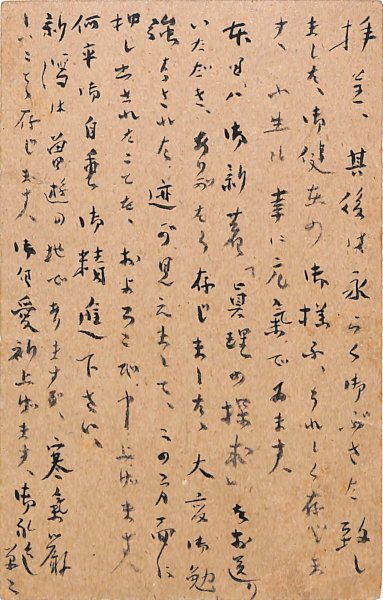 拝呈、其後は永らく御ぶさた致し
ました、御健在の御様子、うれしく存じま
す、小生は幸に元気でゐます、
本日ハ御新著「眞理の探求」を御送り
いただき、ありがたく存じました、大変御勉
強なされた迹が見えまして、この方面に
押し出されたことを、およろこび申上ます、
何卒御自重御精進下さい、
新潟は曽遊の地でありますが、寒氣厳
しいことゝ存じます、御自愛祈上ます、御礼迄 草々